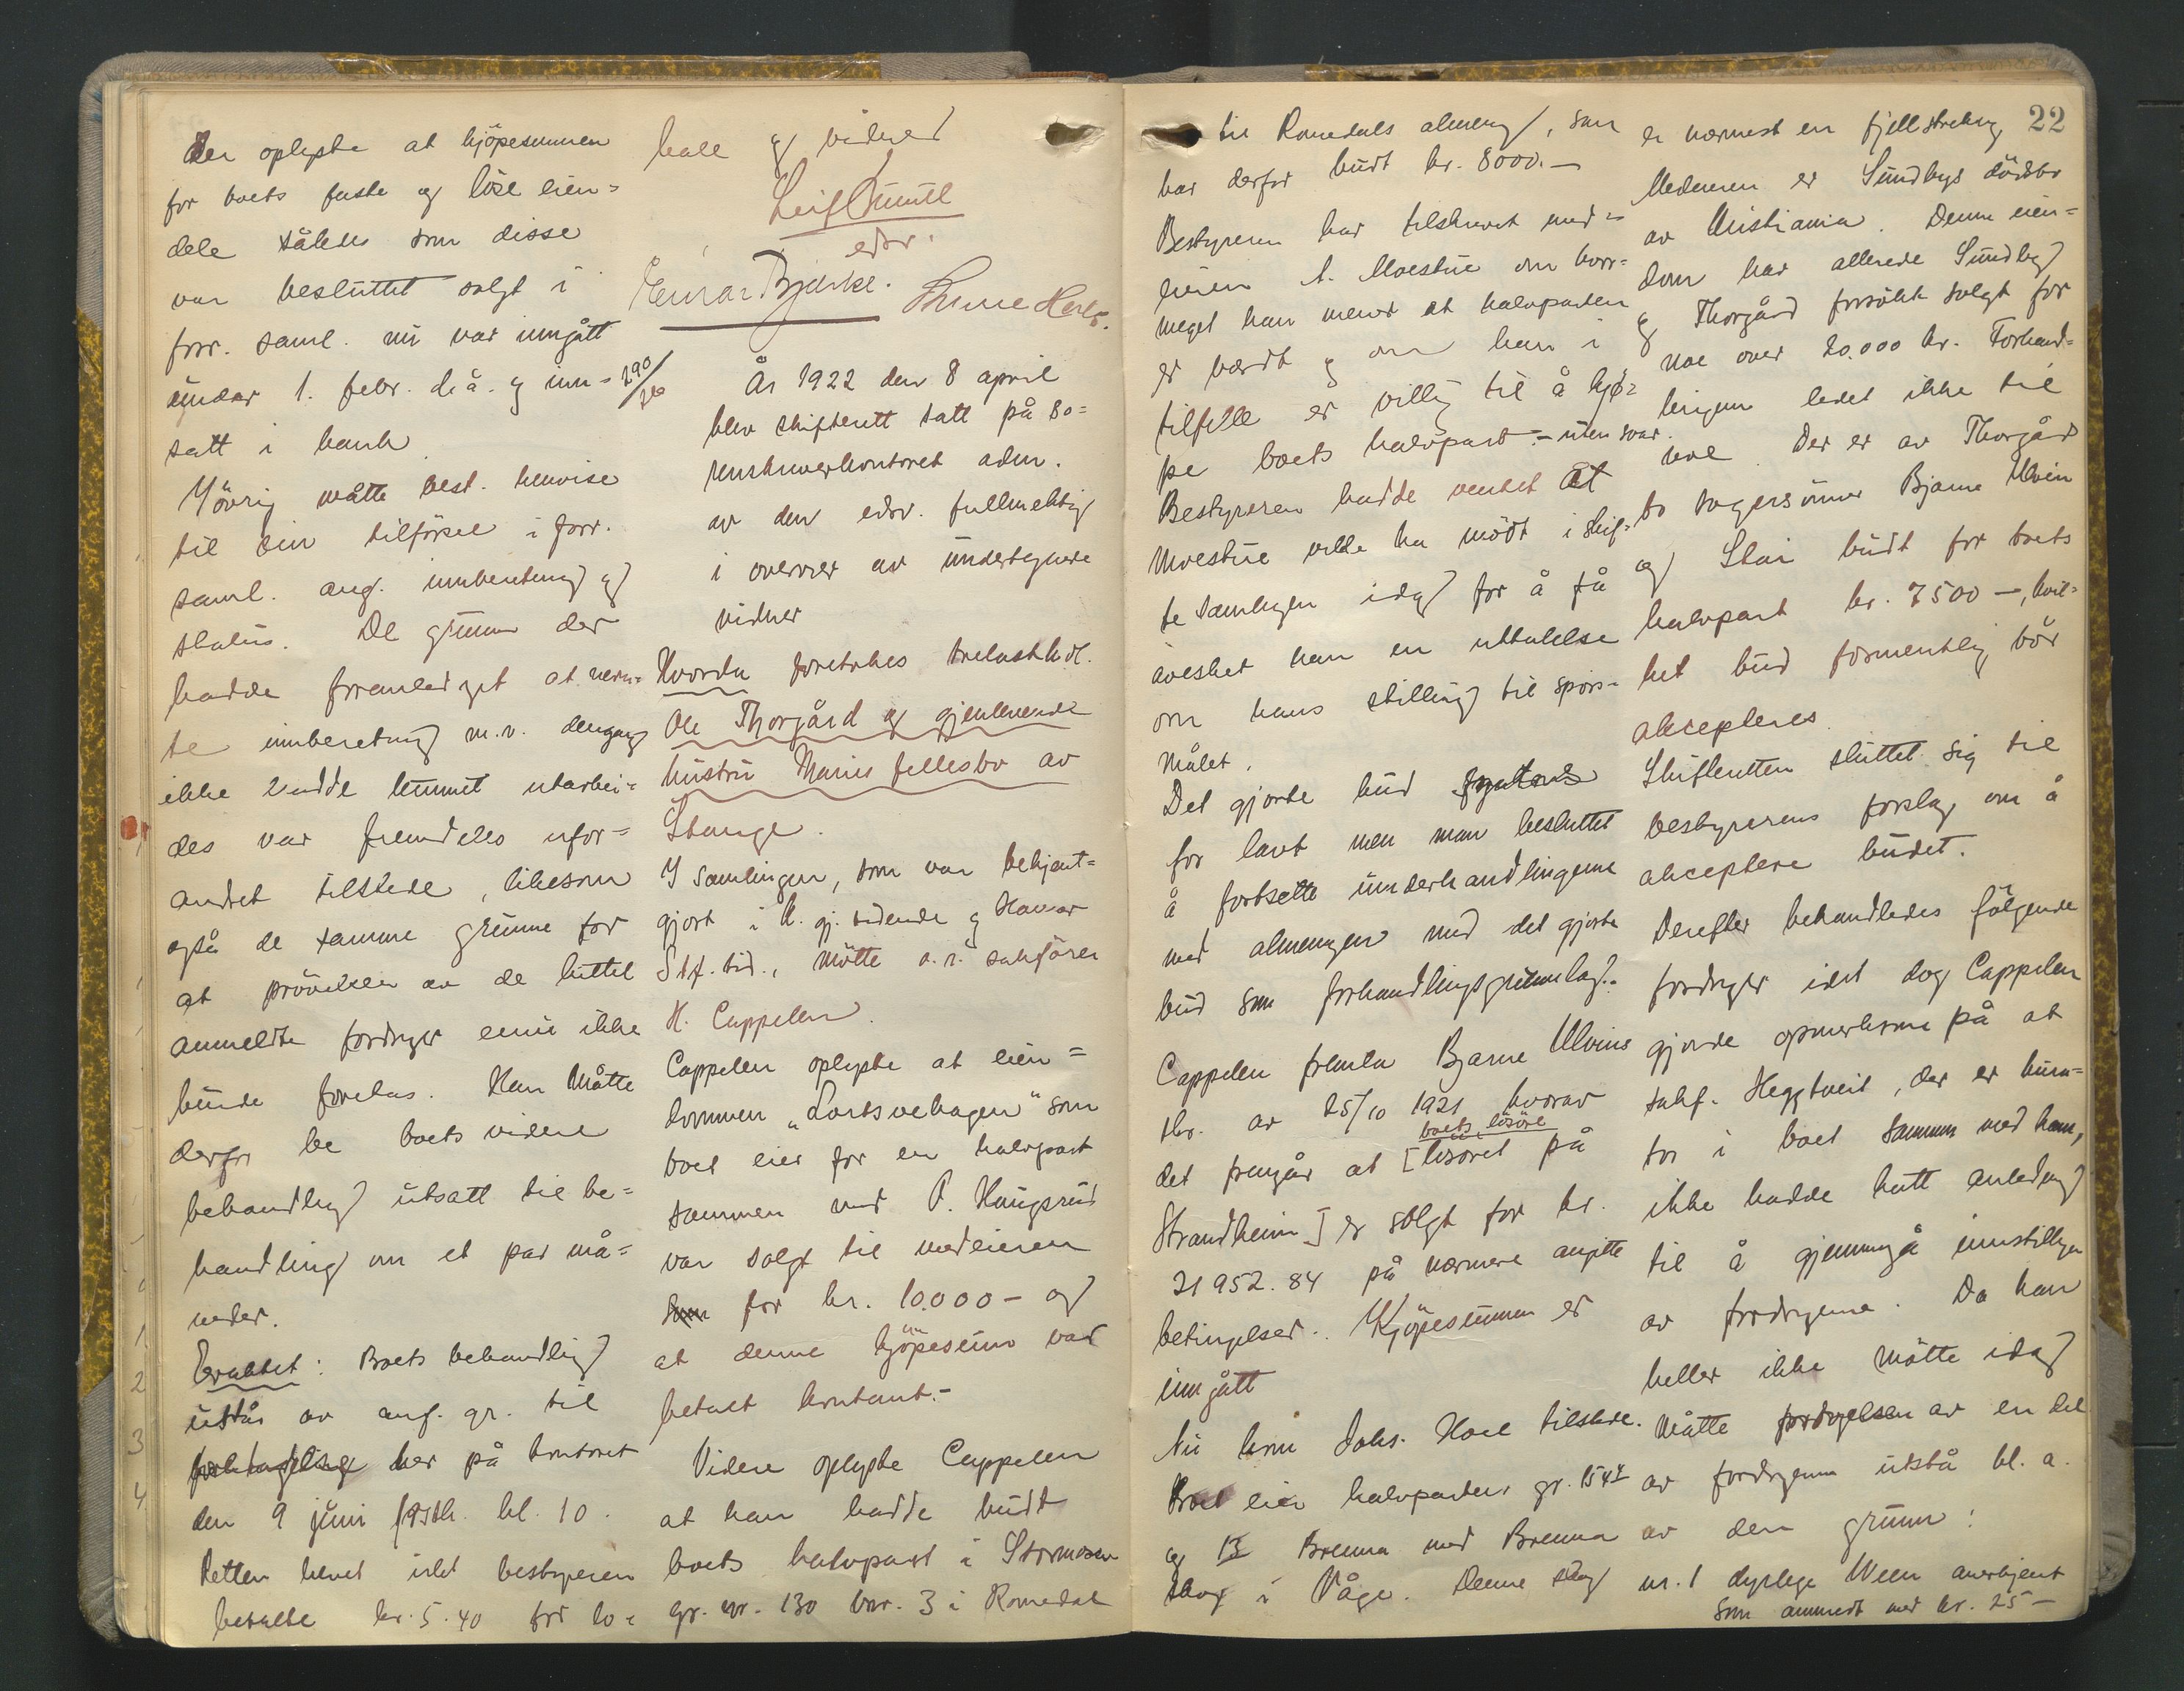 Den oplyste at kjöpesummen
for boets faste og löse eien=
dele således som disse
var besluttet solgt i
forr. saml. nu var inngått
1. febr. d.å. og inn=
satt i bank
Yövrig måtte best. henvise
til sin tilförsel i forr.
saml. ang. innberetning og
status. De grunner der
hadde foranlediget at nevn=
te innberetning m.v. dengang
ikke hadde kunnet utarbei=
des var fremdeles ufor=
andret tilstede, likesom
også de samme grunne for
at prövelsen av de hittil
anmeldte fordringer ennu ikke
kunde foretas. Han måtte
derfor be boets videre
behandling utsatt til be=
handling om et par må=
neder.
Eraktet: Boets behandling
utstår av anf. gr. til
her på kontoret
den 9 juni förstk. kl. 10.
Retten hevet idet bestyreren
betalte kr. 5.40 for lo=
kale og vidner
Leif
edsv.
Einar Bjerke.
290/20
År 1922 den 8 april
blev skifterett satt på So=
renskriverkontoret adm.
av den edsv. fullmektig
i overvær av undertegnede
vidner
Hvorda foretokes trelasthdl.
Ole Thorgård og gjenlevende
hustru Maries fellesbo av
Stange.
Y samlingen, som var bekjent=
gjort i N. gj. tidende og Hamar
Stf. tid., mötte o.r. sakförer
H. Cappelen.
Cappelen oplyste at eien=
dommen „ som
boet eier for en halvpart
sammen med P. Haugsrud
var solgt til medeieren
for kr. 10.000- og
at denne kjöpesum var
betalt kontant.-
Videre oplyste Cappelen
at han hadde budt
boets halvpart i Stormosen
gr. nr. 130 bnr. 3 i Romedal
22
til Romedals almenning, som
har derfor budt kr. 8000.-
Bestyreren har tilskrevet med=
eieren A. Moestue om hvor=
meget han mener at halvparten
er verdt og om han i
tilfelle er villig til å kjö=
pe boets halvpart - uten svar.
Bestyreren hadde ventet at
Moestue vilde ha mött i skif=
tesamlingen idag for å få
avesket ham en uttalelse
om hans stilling til spörs=
målet.
Det gjorte bud syntes
for lavt men man besluttet
å fortsette underhandlingerne
med almenningen med det gjorte
bud som forhandlingsgrunnlag.-
Cappelen fremla Bjarne Ulvins
skr. av 25/10 1921 hvorav
boets lösöre
det fremgår at [lösöret på
Strandheim] er solgt for kr.
21952.84 på nærmere angitte
betingelser. Kjöpesummen er
inngått
Nu kom Johs. Hoel tilstede.
Boet eier halvparten gr. 154
og 13 Brenna med Brenna
skog i Våge. Denne skog
er nærmest en fjellstrekning
Medeieren er Sundbys dödsbo
av Kristiania. Denne eien=
dom har allerede Sundby
& Thorgård forsökt solgt for
noe over 20.000 kr. Forhand=
lingene ledet ikke til
noe. Der er av Thorgårds
to svigersönner Bjarne Ulvin
og Stai budt for boets
halvpart kr. 7500-, hvil=
ket bud formentlig bör
aksepteres.
Skifteretten sluttet sig til
bestyrerens forslag om å
akceptere budet.
Derefter behandledes fölgende
fordringer idet dog Cappelen
gjorde opmerksom på at
sakf. Heggtveit, der er kura=
tor i boet sammen med ham,
ikke hadde hatt anledning
til å gjennemgå innstillingen
av fordringerne. Da han
heller ikke mötte idag
måtte av en del
av fordringerne utstå bl. a.
av den grunn:
nr. 1 dyrlege Ween anerkjent
som anmeldt med kr. 25-